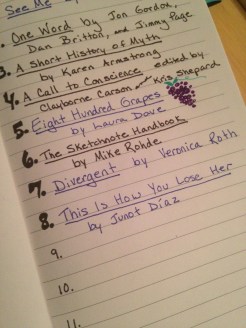 See Me
. One Word by Jon Gordon,
Dan Britton, and Jimmy Page
3. A Short History of Myth
by Karen Armstrong
4. A Call to Conscience edited by
Clayborne Carson Kris Shepard
5. Eight Hundred Grapes
by Laura Dave
6. The Sketchnote Handbook
by Mike Rohde
7. Divergent by Veronica Roth
8. This Is How You Lose Her
by Junot Díaz
9.
10.
11.